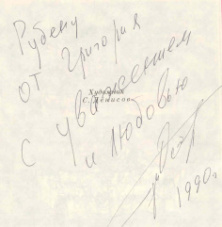 Рубену
от Григория
с уважением
и любовью
Художник
С. Денисов
1990г.